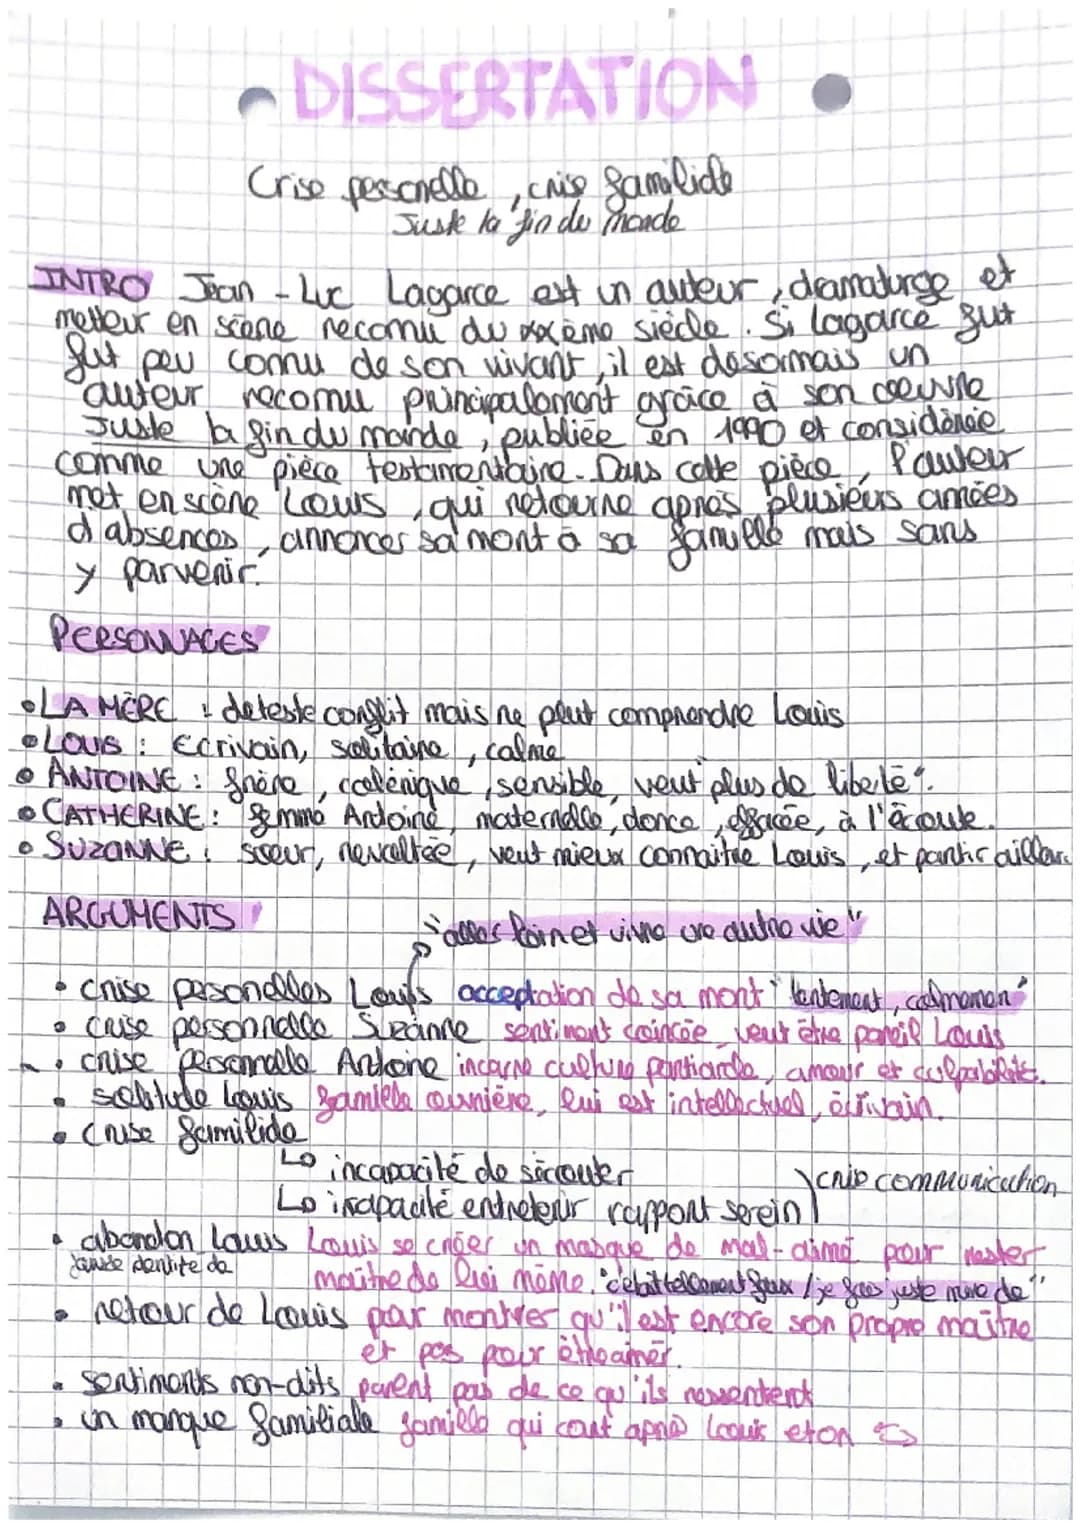 DISSERTATION
Crise personelle, crise familiale
Juste la fin du monde
INTRO Jean-Luc Lagarce est un auteur, dramaturge et
metteur en scène reconnu du xxème siècle. Si Lagarce fut
fut peu connu de son vivant, il est désormais un
auteur reconnu principalement grâce à son oeuvre
Juste la fin du monde, publiée en 1990 et considérée
comme une pièce testamentaire. Dans cette pièce, l'auteur
met en scène Louis, qui retourne après plusieurs années
d'absences, annoncer sa mort à sa famille mais sans
y parvenir.
PERSONNAGES
• LA MÈRE : deteste conflit mais ne peut comprendre Louis
• LOUIS : Ecrivain, solitaire, calme
• ANTOINE : frère, colérique, sensible, veut "plus de liberté".
• CATHERINE : femme Antoine, maternelle, donce, effacée, à l'écoute.
• SUZANNE : soeur, revoltée, veut mieux connaitre Louis, et partir ailleurs
ARGUMENTS
"aller loin et vivre une autre vie"
• crise personelles Louis acceptation de sa mort "lentement, calmement"
• crise personnelle Suzanne sentiment coincée, veut être pareil Louis
• crise personnelle Antoine incarne culture, amour et culpabilité.
• solitude Louis famille ouvrière, lui est intellectuel, écrivain.
• Crise familiale
↳ incapacité de s'écouter
crise communication
↳ incapacité entretenir rapport serein
• abandon Louis Louis se créer un masque de mal-aimé pour rester
de
maître de lui même. "c'était tellement faux / je juste de"
• retour de Louis par montrer qu'il est encore son propre maître
et pas pour être aimer.
• sentiments non-dits parlent pas de ce qu'ils ressentent
• un manque familiale famille qui court après Louis et on